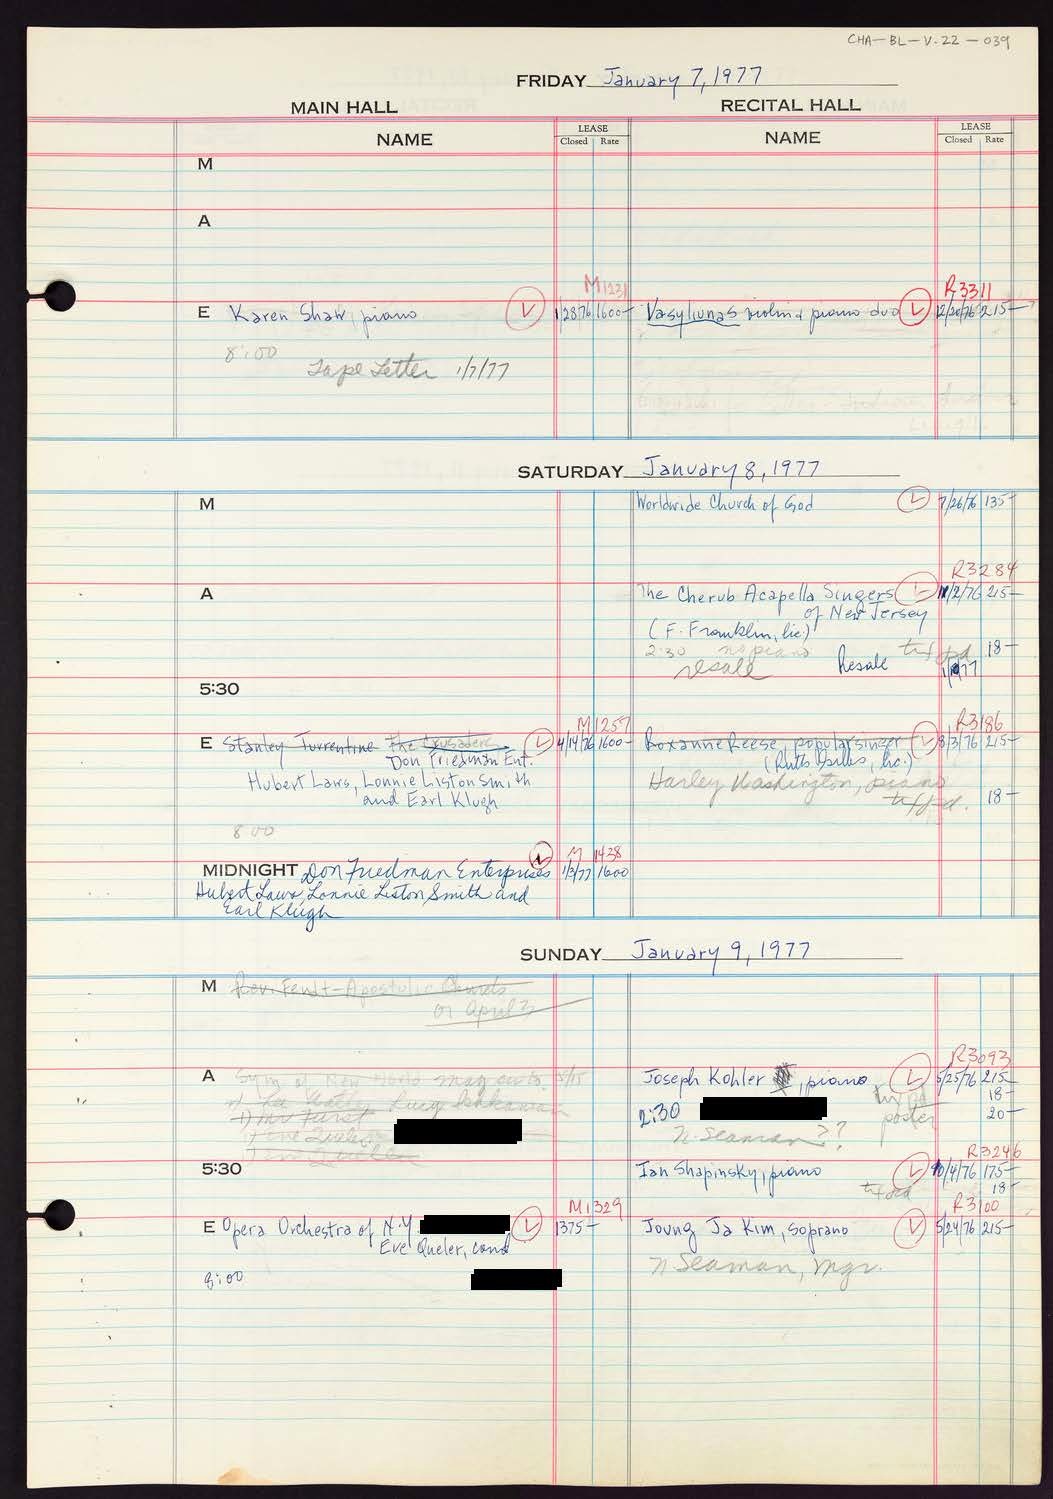 CHA-BL-V.22-039
FRIDAY January 7, 1977
MAIN HALL RECITAL HALL
NAME LEASE Closed Rate NAME LEASE Closed Rate
M
A
M1231 R3311
E Karen Shaw, piano L 1/28/76 1600- Vasyliunas violin & piano duo L 12/20/76 215-
8:00
Tape Letter 1/7/77
SATURDAY January 8, 1977
M Worldwide Church of God L 7/26/76 135-
R3284
A The Cherub Acapella Singers L 11/2/76 215-
of New Jersey
(F. Franklin, lic.)
2:30 no piano 18-
resale Resale
5:30
M1257 R3186
E Stanley Turrentine The Crusaders L 4/14/76 1600- Roxanne Reese, popular singer L 8/3/76 215-
Don Friedman Ent. (Ruth Gilles, lic.)
Hubert Laws, Lonnie Liston Smith Harley Washington, piano
and Earl Klugh 18-
8:00
M 1438
MIDNIGHT Don Friedman Enterprises L 1/3/77 1600
Hubert Laws, Lonnie Liston Smith and
Earl Klugh
SUNDAY January 9, 1977
M Rev. Fendt-Apostolic Church
or April 3
R3093
A Sym of New World may outs. Joseph Kohler, piano L 5/25/76 215-
18-
2:30 poster 20-
N. Seaman??
R3246
5:30 Ian Shapinsky, piano L 10/4/76 175-
18-
M1329 R3100
E Opera Orchestra of N.Y. L 1375- Joung Ja Kim, soprano L 5/24/76 215-
Eve Queler, cond
N Seaman, mgr.
8:00